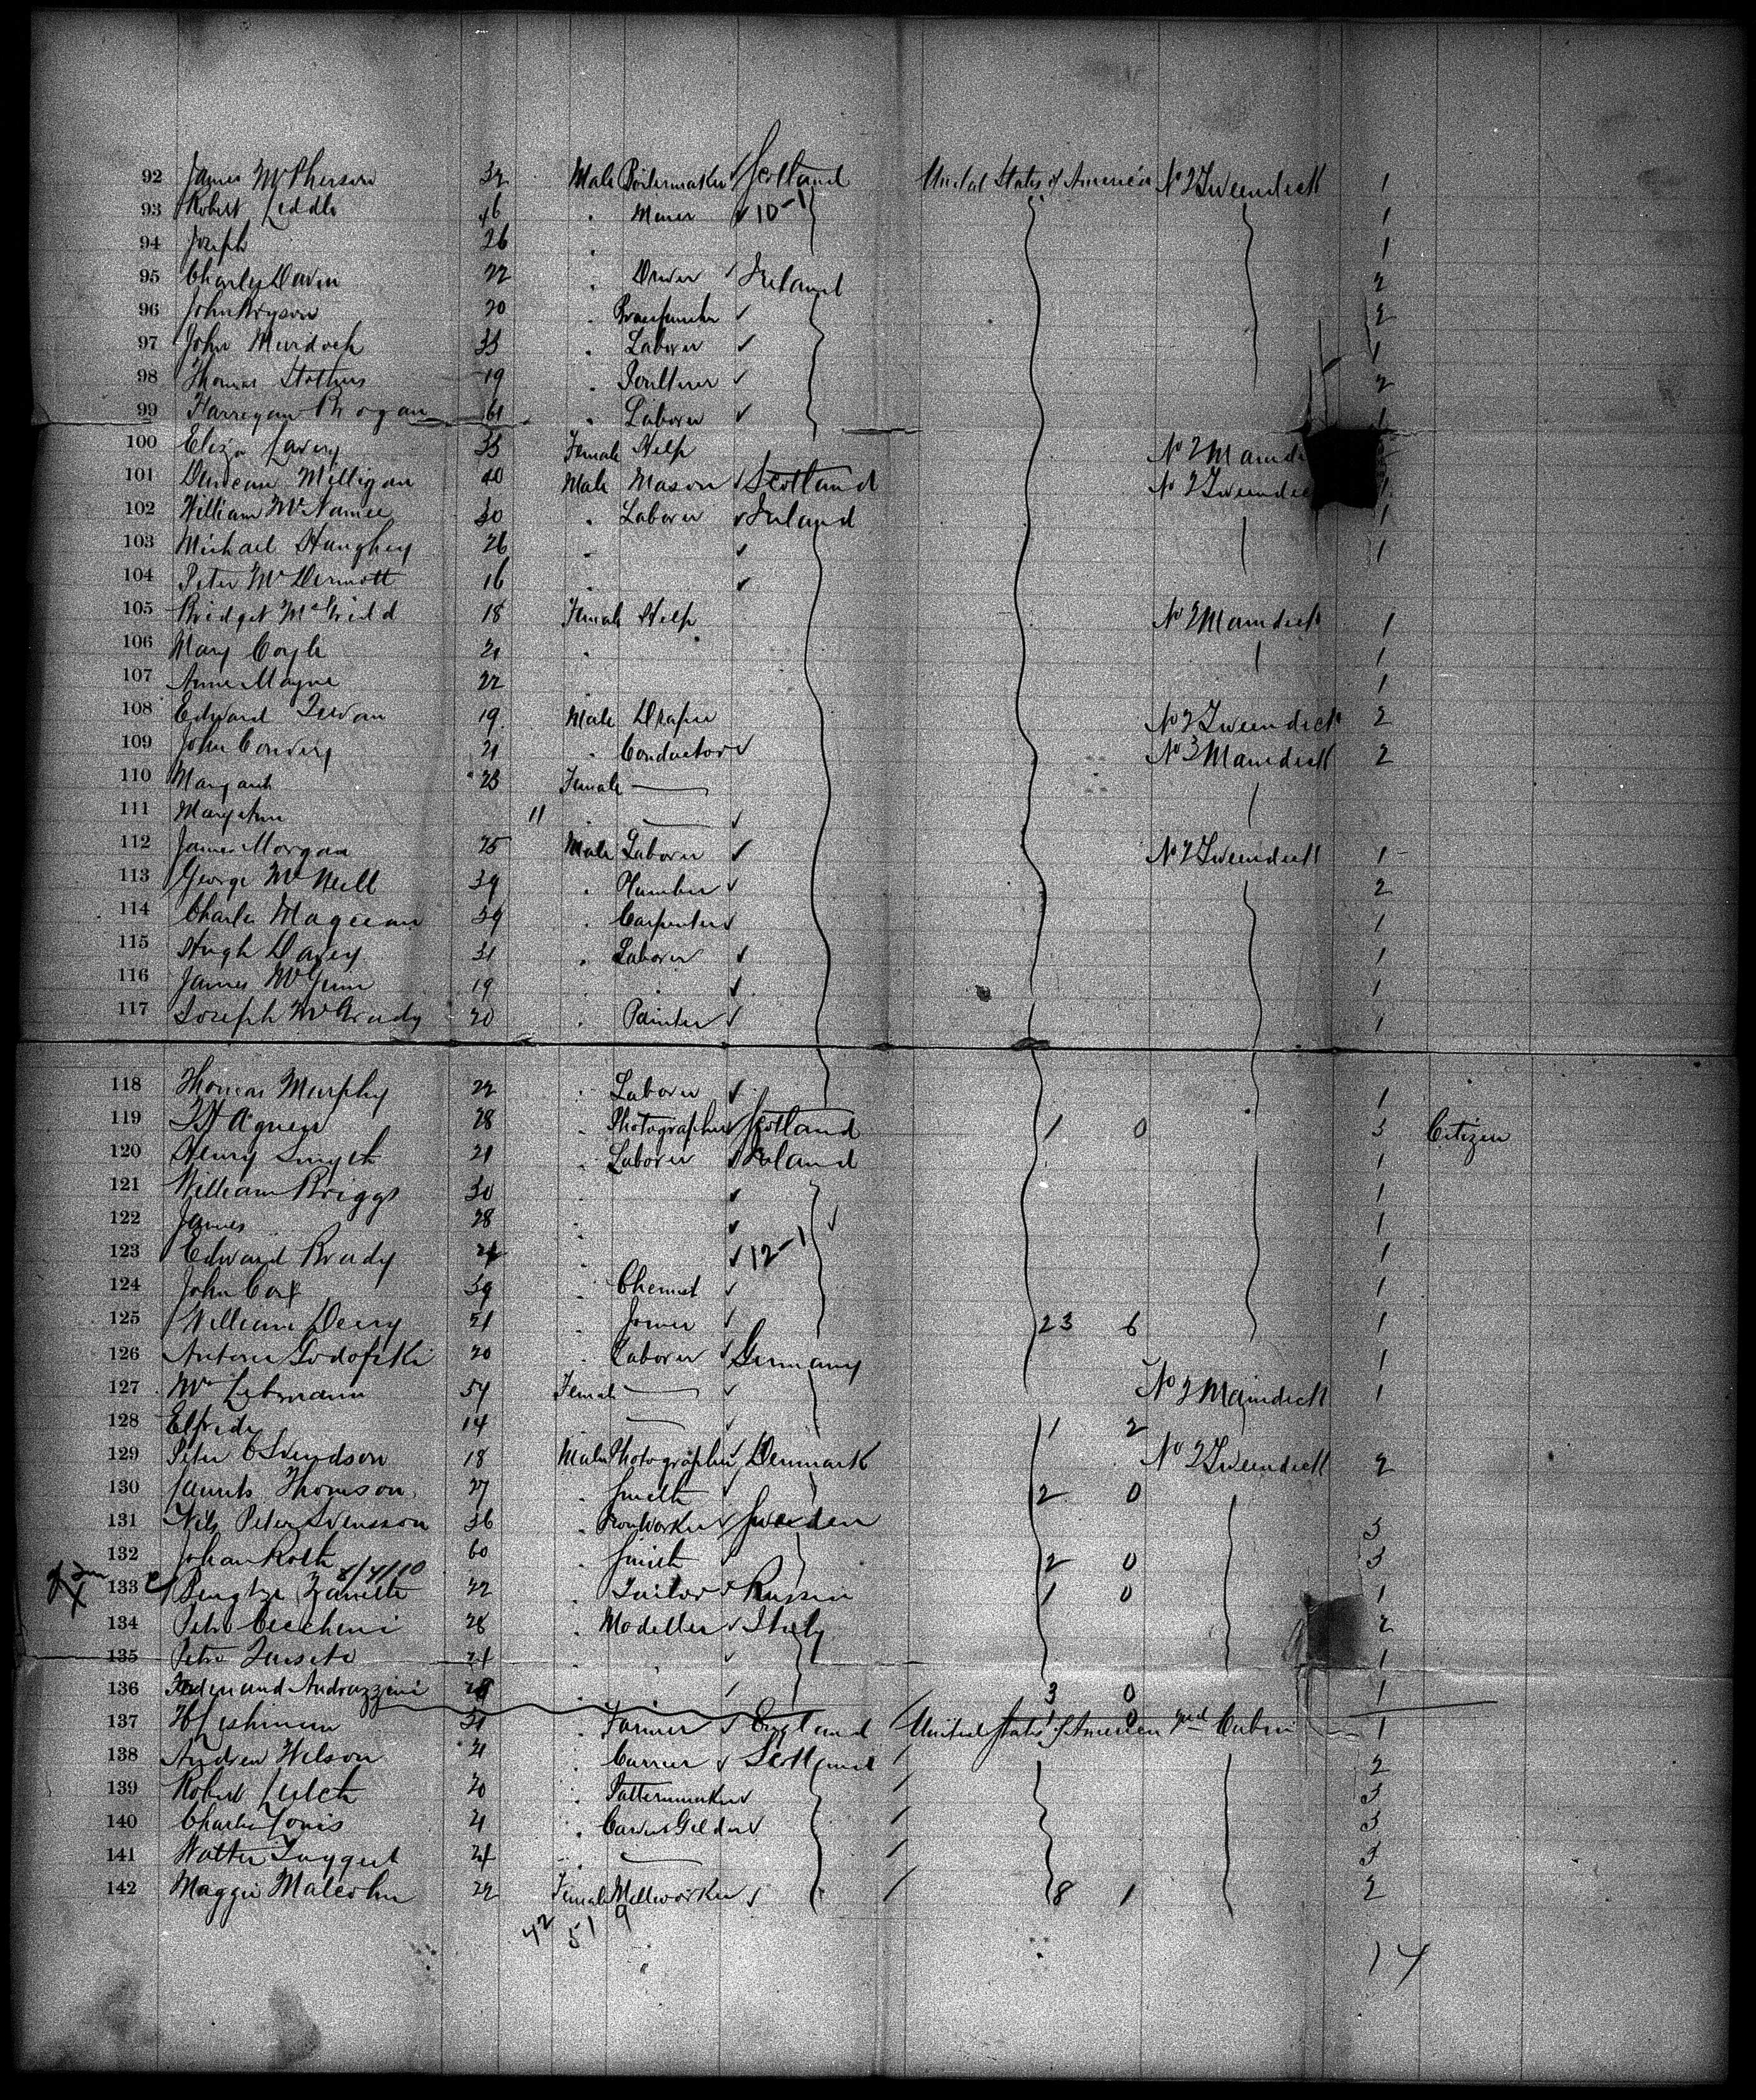 92 James McPherson 32 Male Boilermaker Scotland United States of America No 2 Tweendeck 1
93 Robert Liddle 46 " Miner 10-1 1
94 Joseph 26 " 1
95 Charles Davin 22 " Driver Ireland 2
96 John Bryson 20 " 2
97 John Murdoch 33 " Laborer 1
98 Thomas Stothers 19 " 2
99 Harrigan Brogan 61 " Laborer 1
100 Eliza Lavery 33 Female Help No 2 Maindeck
101 Duncan Milligan 40 Male Mason Scotland No 2 Tweendeck 1
102 William McNamee 30 " Laborer Ireland 1
103 Michael Haughey 26 " 1
104 Peter McDermott 16 "
105 Bridget 18 Female Help No 2 Maindeck 1
106 Mary Coyle 21 " 1
107 Anne Mayne 22 1
108 Edward 19 Male Draper No 2 Tweendeck 2
109 John Convery 21 " Conductor No 3 Maindeck 2
110 Margaret 23 Female
111 Mary Ann 11
112 James Morgan 25 Male Laborer No 2 Tweendeck 1
113 George McNeill 39 " Plumber 2
114 Charles Mageean 39 " Carpenter 1
115 Hugh Davey 31 " Laborer 1
116 James McGinn 19 " 1
117 Joseph McGrady 20 " Painter 1
118 Thomas Murphy 22 " Laborer 1
119 Agnew 28 " Photographer Scotland 1 0 3 Citizen
120 Henry Smyth 21 " Laborer Ireland 1
121 William Briggs 30 " 1
122 James 28 " 1
123 Edward Brady 24 " 12-1 1
124 John Cox 39 " Chemist 1
125 William Derry 21 " Joiner 23 6 1
126 20 " Laborer Germany 1
127 Mrs Lehmann 54 Female No 2 Maindeck 1
128 Elfride 14 1 2
129 Peter C Svendson 18 Male Photographer Denmark No 2 Tweendeck 2
130 Thomson 27 " Smith 2 0
131 Nils Peter Svensson 36 " Ironworker Sweden 3
132 Johan Roth 60 " Smith 2 0 3
133 22 " Tailor Russia 1 0 1
134 Petro Ceccheni 28 " Modeller Italy 2
135 Petro 24 " 1
136 Ferdinand Andrazzini 28 " 3 0 1
137 31 " Farmer England United States of America 2nd Cabin 1
138 Andrew Wilson 21 " Carrier Scotland 2
139 Robert Leitch 20 " Patternmaker 3
140 Charles 21 " Carver Gilder 3
141 Walter Taggart 24 " 3
142 Maggie Malcolm 22 Female Millworker 8 1 2
42 51 9
14